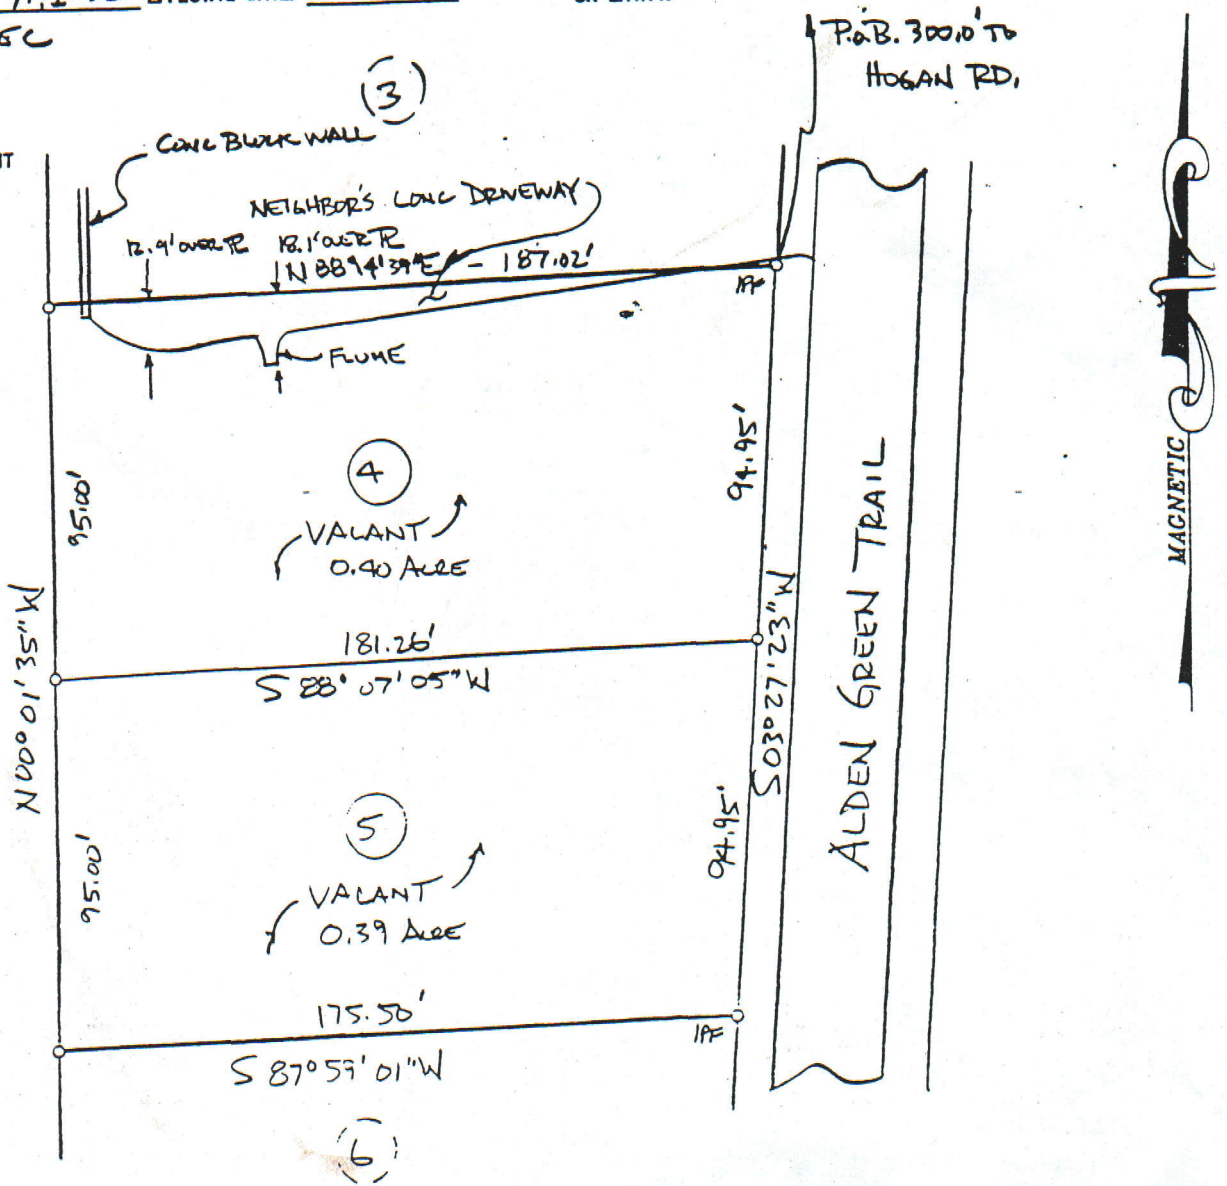 P.O.B. 300.0' TO
HOGAN RD.
3
CONC BLOCK WALL
NEIGHBOR'S CONC DRIVEWAY
12.9' OVER PL 18.1' OVER PL
N 88°14'39"E - 187.02'
IPF
FLUME
95.00'
94.95'
4
VACANT
0.40 ACRE
N 00° 01' 35" W
181.26'
S 88° 07' 05" W
S 03° 27' 23" W
ALDEN GREEN TRAIL
MAGNETIC
95.00'
94.95'
5
VACANT
0.39 ACRE
175.50'
IPF
S 87° 59' 01" W
6